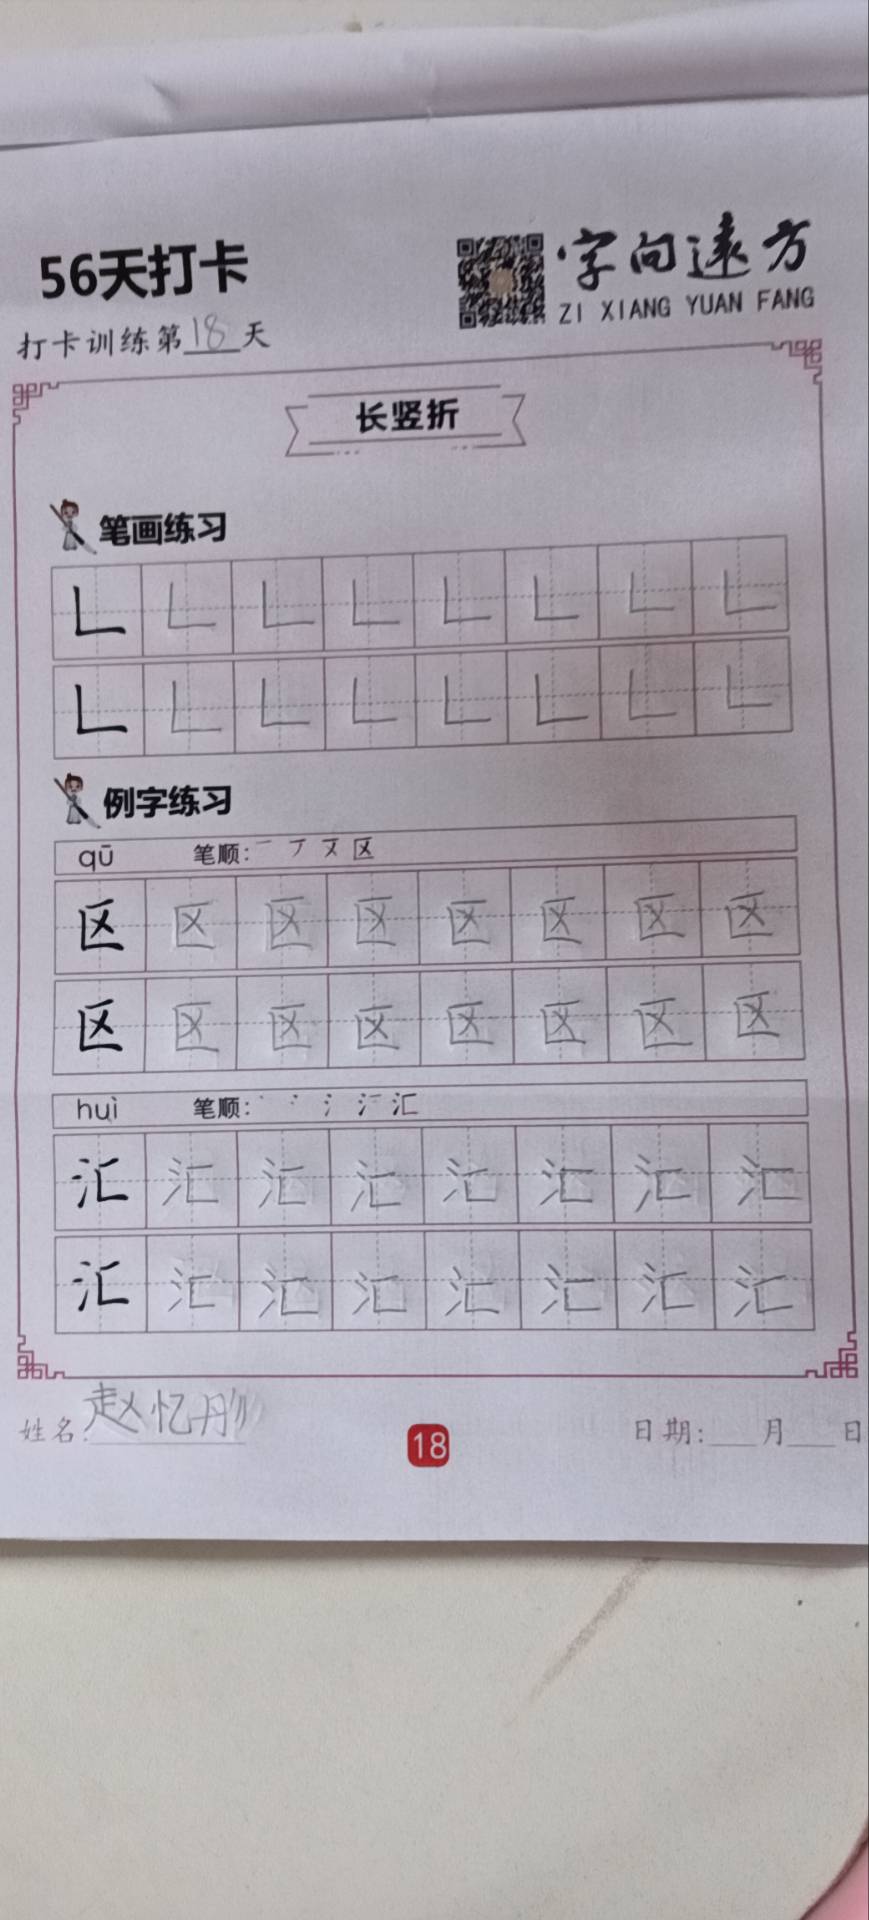 56天打卡
字向远方
ZI XIANG YUAN FANG
打卡训练第18天
长竖折
笔画练习
𠃊 𠃊 𠃊 𠃊 𠃊 𠃊 𠃊 𠃊
𠃊 𠃊 𠃊 𠃊 𠃊 𠃊 𠃊 𠃊
例字练习
qū 笔顺: 一 丆 区
区 区 区 区 区 区 区 区
区 区 区 区 区 区 区 区
huì 笔顺: 丶 冫 氵 汇
汇 汇 汇 汇 汇 汇 汇 汇
汇 汇 汇 汇 汇 汇 汇 汇
姓名:赵忆彤
18
日期:___月___日